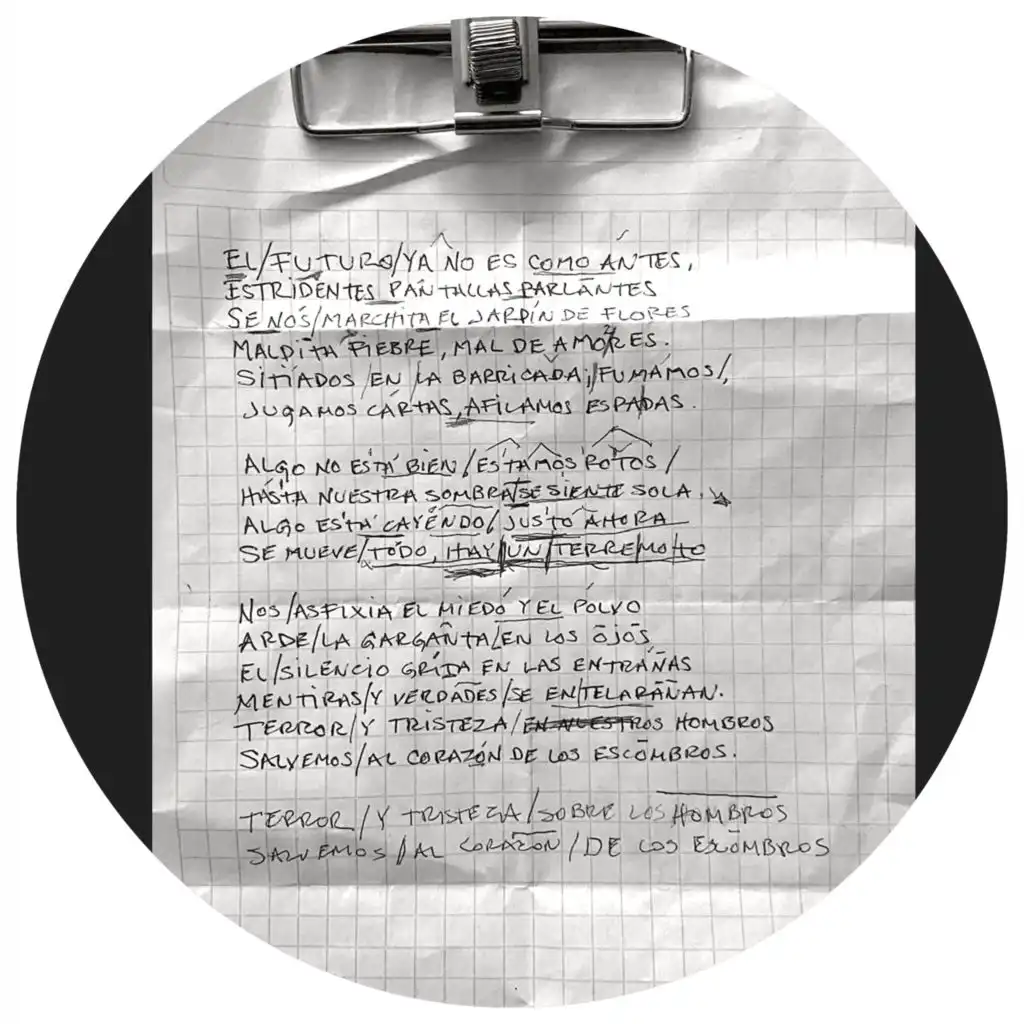 EL/FUTURO/YA NO ES COMO ANTES,
ESTRIDENTES PANTALLAS PARLANTES
SE NOS/MARCHITA EL JARDÍN DE FLORES
MALDITA FIEBRE, MAL DE AMORES.
SITIADOS/EN LA BARRICADA,/FUMAMOS/,
JUGAMOS CARTAS, AFILAMOS ESPADAS.
ALGO NO ESTÁ BIEN/ESTAMOS ROTOS/
HASTA NUESTRA SOMBRA/SE SIENTE SOLA.
ALGO ESTÁ CAYENDO/JUSTO AHORA
SE MUEVE/TODO, HAY/UN/TERREMOTO
NOS/ASFIXIA EL MIEDO Y EL POLVO
ARDE/LA GARGANTA/EN LOS OJOS
EL/SILENCIO GRITA EN LAS ENTRAÑAS
MENTIRAS/Y VERDADES/SE EN/TELARAÑAN.
TERROR/Y TRISTEZA/EN NUESTROS HOMBROS
SALVEMOS/AL CORAZÓN DE LOS ESCOMBROS.
TERROR/Y TRISTEZA/SOBRE LOS HOMBROS
SALVEMOS/AL CORAZON/DE LOS ESCOMBROS